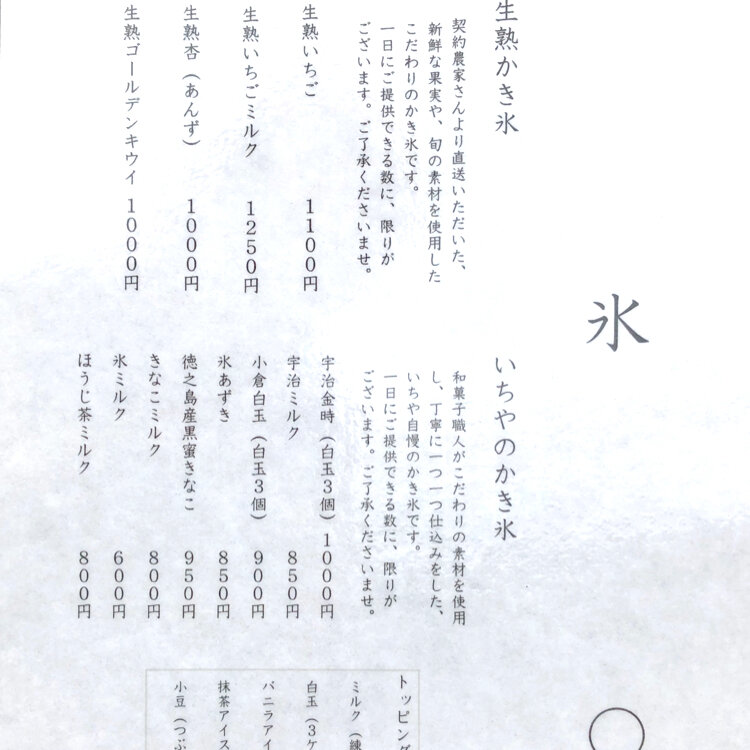 氷
生熟かき氷
契約農家さんより直送いただいた、
新鮮な果実や、旬の素材を使用した
こだわりのかき氷です。
一日にご提供できる数に、限りが
ございます。ご了承くださいませ。
生熟いちご 1100円
生熟いちごミルク 1250円
生熟杏（あんず） 1000円
生熟ゴールデンキウイ 1000円
いちやのかき氷
和菓子職人がこだわりの素材を使用
し、丁寧に一つ一つ仕込みをした、
いちや自慢のかき氷です。
一日にご提供できる数に、限りが
ございます。ご了承くださいませ。
宇治金時（白玉3個） 1000円
宇治ミルク 850円
小倉白玉（白玉3個） 900円
氷あずき 850円
徳之島産黒蜜きなこ 950円
きなこミルク 800円
氷ミルク 600円
ほうじ茶ミルク 800円
トッピング
ミルク（練
白玉（3ケ
バニラアイ
抹茶アイス
小豆（つぶ